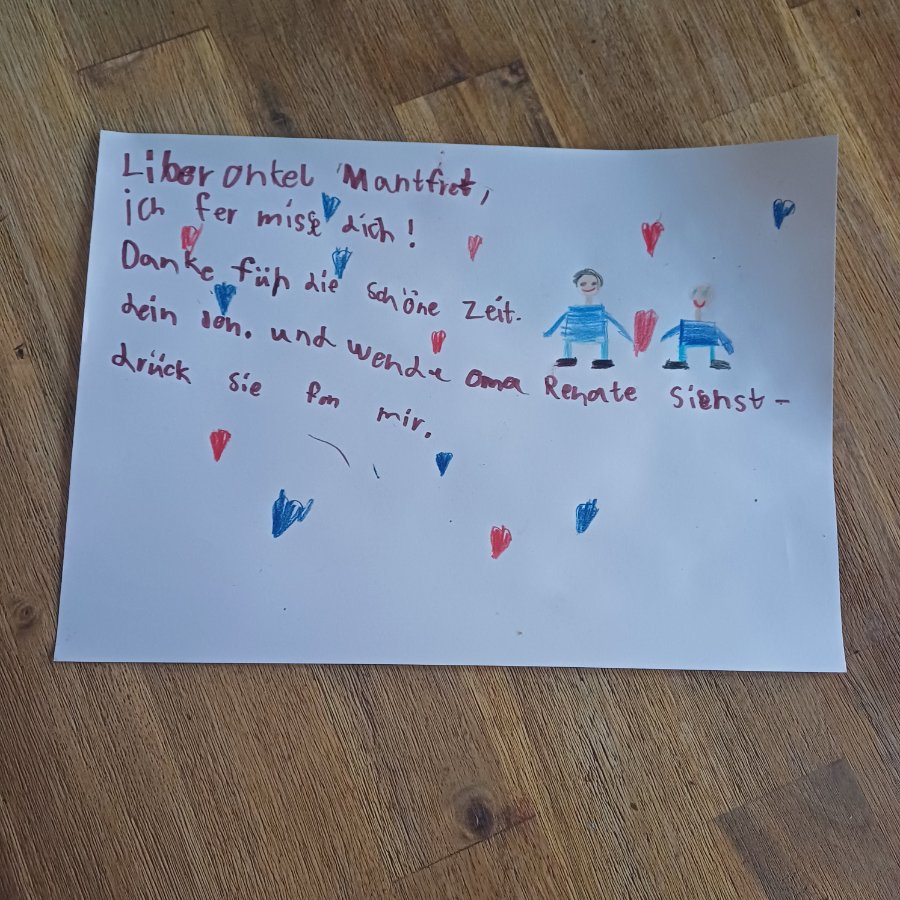 Liber Onkel Mantfret,
ich fer misse dich!
Danke für die schöne Zeit.
dein Jon. und wende oma Renate siehst-
drück sie fon mir.